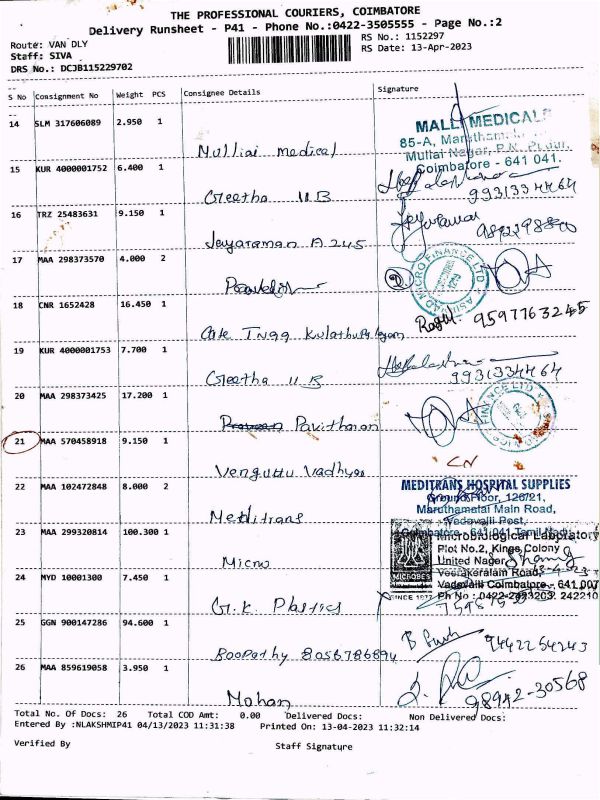 THE PROFESSIONAL COURIERS, COIMBATORE
Delivery Runsheet - P41 - Phone No.:0422-3505555 - Page No.:2
Route: VAN DLY
RS No.: 1152297
Staff: SIVA
RS Date: 13-Apr-2023
DRS No.: DCJB115229702
S No Consignment No Weight PCS Consignee Details Signature
14 SLM 317606089 2.950 1
Mulliai medical
MALLI MEDICALS
85-A,
Mullai Nagar, P.N. Pudur,
Coimbatore - 641 041.
15 KUR 4000001752 6.400 1
Greetha 11 B
9931334464
16 TRZ 25483631 9.150 1
Jayaraman A 245
17 MAA 298373570 4.000 2
MICRO FINANCE LTD
18 CNR 1652428 16.450 1
9597763245
19 KUR 4000001753 7.700 1
Greetha 11 B
9931334464
20 MAA 298373425 17.200 1
Pavitharan
FINANCE LTD
21 MAA 570458918 9.150 1
CN
22 MAA 102472848 8.000 2
Meditrans
MEDITRANS HOSPITAL SUPPLIES
Ground Floor, 126/21,
Maruthamalai Main Road,
Vedavalli Post,
Coimbatore - 641 041 Tamil Nadu
23 MAA 299320814 100.300 1
Micro
Microbiological Laboratory
Plot No.2, Kings Colony
United Nagar
Veerakeralam Road,
Vadavalli Coimbatore - 641 007
Ph No : 0422-2423203, 242210
MICROBES
SINCE 1977
24 MYD 10001300 7.450 1
G.K. Plastics
25 GGN 900147286 94.600 1
Boopathy 8056786894
9442254243
26 MAA 859619058 3.950 1
Mohan
98942-30568
Total No. Of Docs: 26 Total COD Amt: 0.00 Delivered Docs: Non Delivered Docs:
Entered By :NLAKSHMIP41 04/13/2023 11:31:38 Printed On: 13-04-2023 11:32:14
Verified By Staff Signature